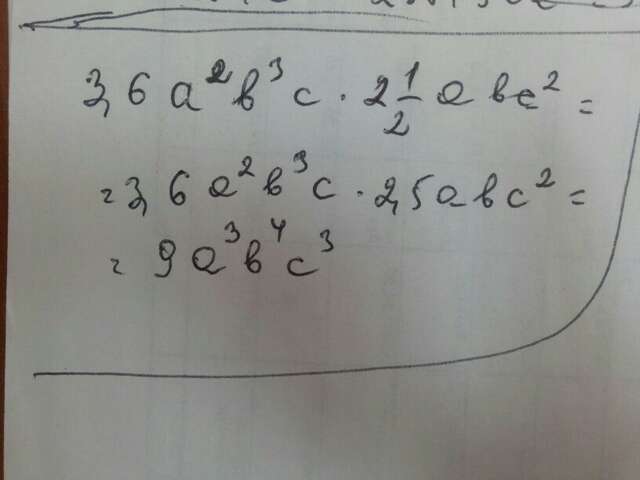 3,6 a²b³c · 2 1/2 abc² =
= 3,6a²b³c · 2,5abc² =
= 9a³b⁴c³